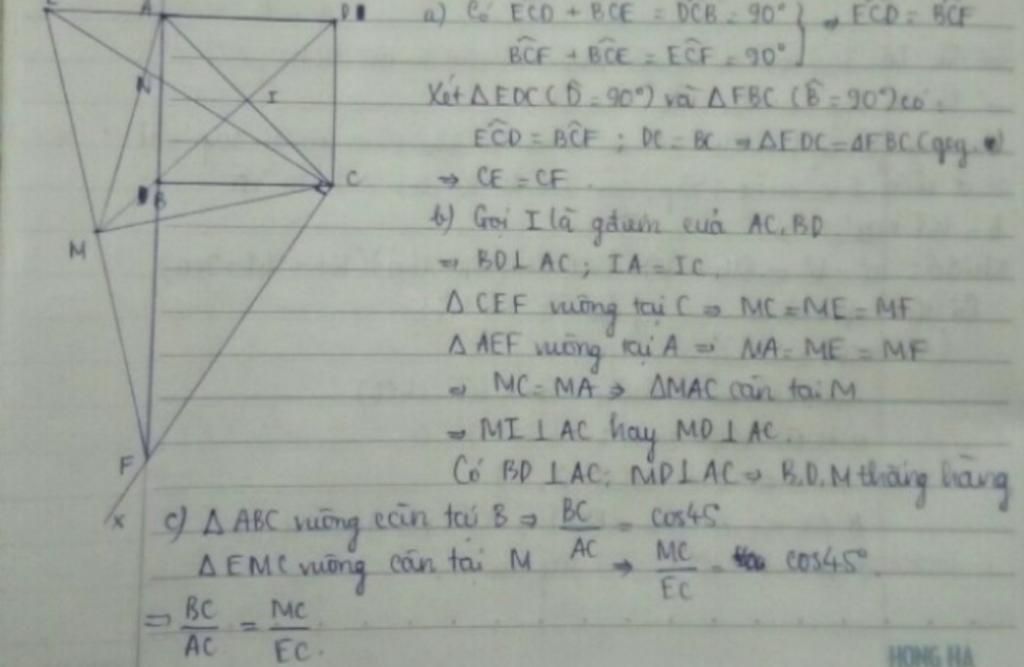 E A D
N
I
B C
M
F
x
a) Có ECD + BCE = DCB = 90° } ⇒ ECD = BCF
BCF + BCE = ECF = 90°
Xét ΔEDC (D = 90°) và ΔFBC (B = 90°) có:
ECD = BCF ; DC = BC ⇒ ΔEDC = ΔFBC (gcg)
⇒ CE = CF.
b) Gọi I là gđiểm của AC, BD
⇒ BD ⊥ AC ; IA = IC.
Δ CEF vuông tại C ⇒ MC = ME = MF
Δ AEF vuông tại A ⇒ MA = ME = MF
⇒ MC = MA ⇒ ΔMAC cân tại M
⇒ MI ⊥ AC hay MD ⊥ AC.
Có BD ⊥ AC; MD ⊥ AC ⇒ B,D,M thẳng hàng
c) Δ ABC vuông cân tại B ⇒ BC/AC = cos45
Δ EMC vuông cân tại M ⇒ MC/EC = cos45°
⇒ BC/AC = MC/EC.
HONG HA